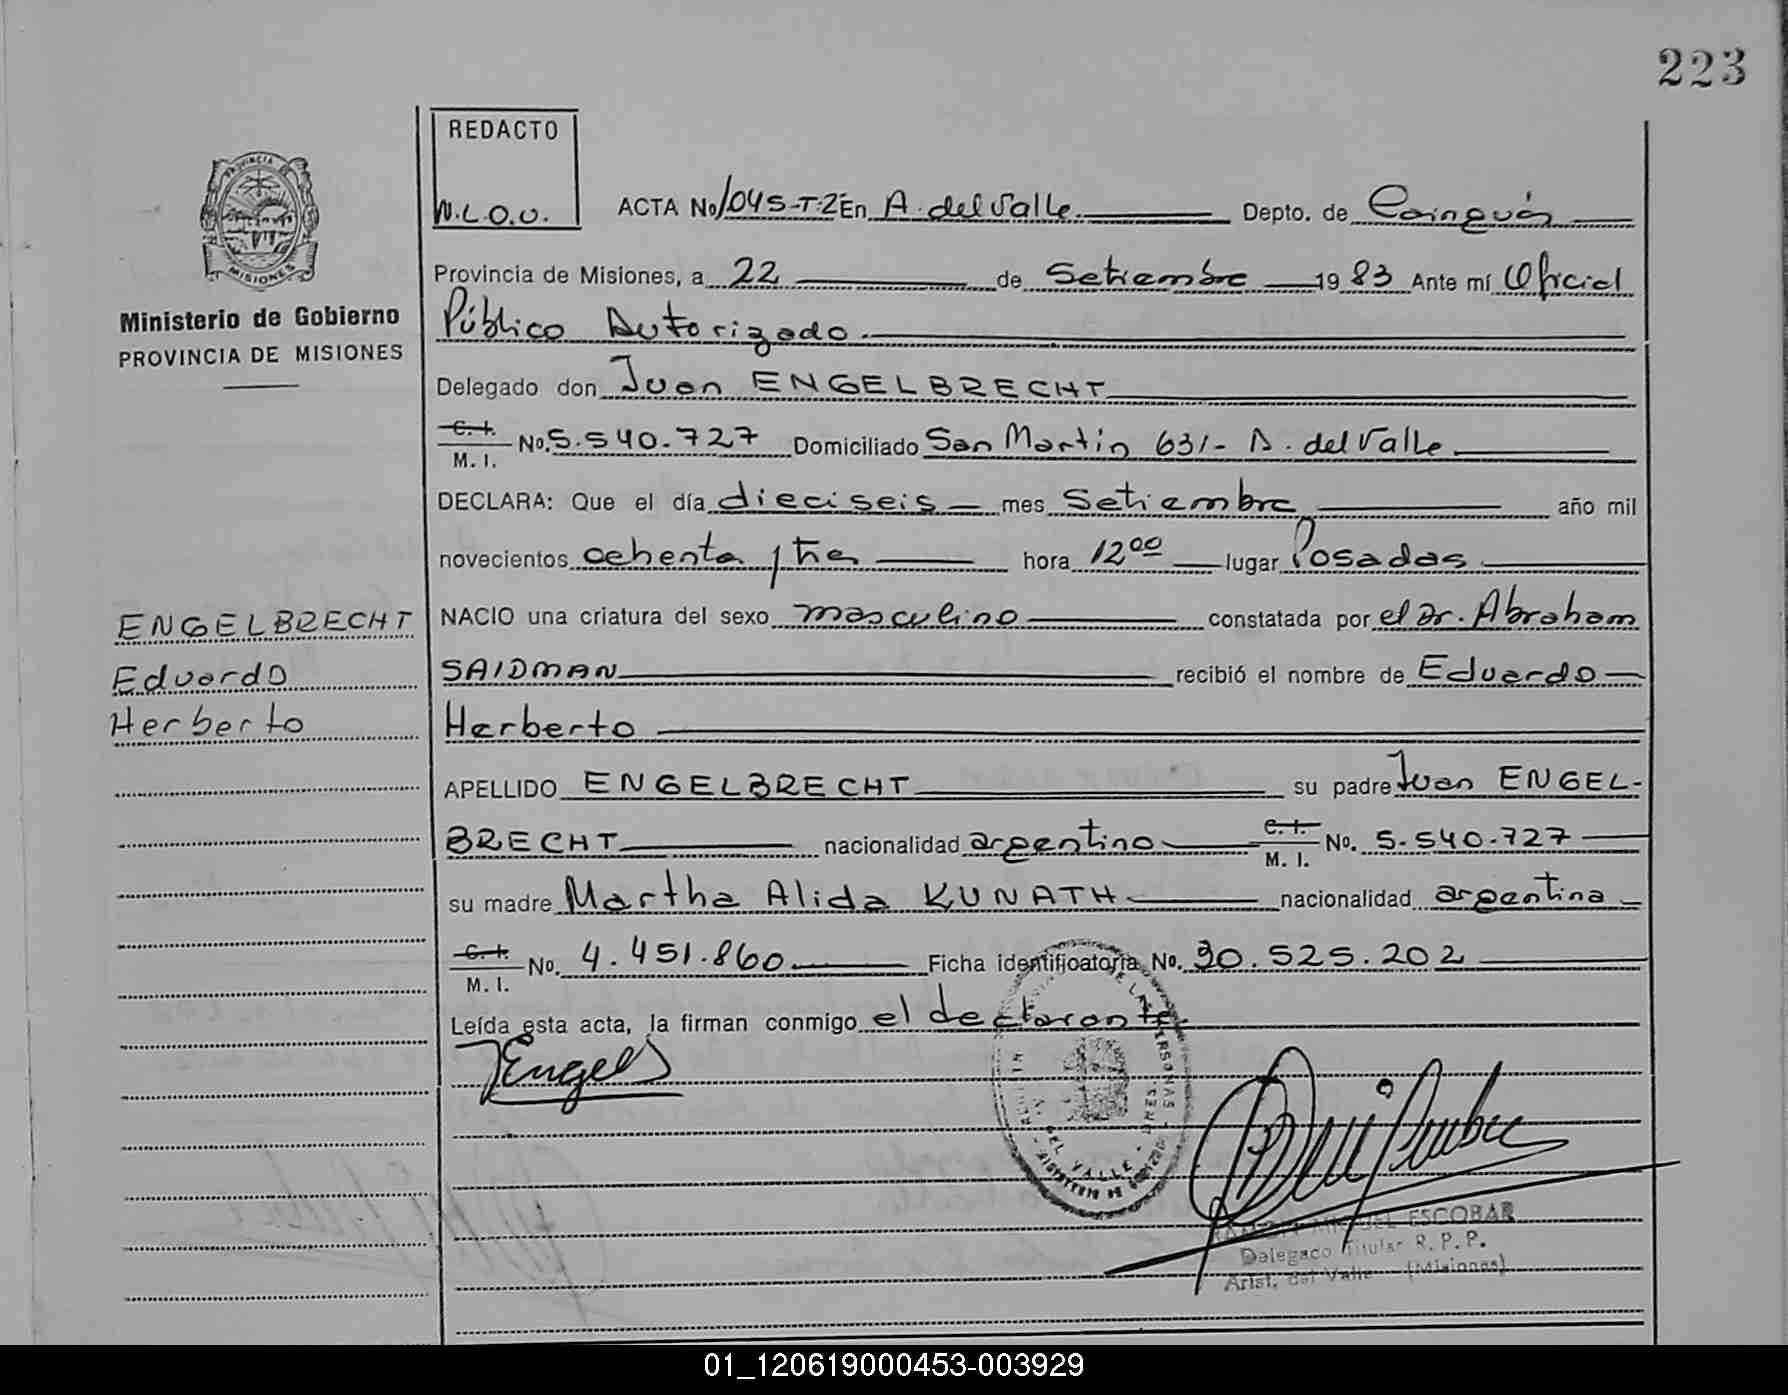 223
REDACTO
N.L.O.U.
ACTA No 1045-T-2 En A. del Valle Depto. de Cainguás
Provincia de Misiones, a 22 de Setiembre 1983 Ante mí Oficial
Ministerio de Gobierno
PROVINCIA DE MISIONES
Público Autorizado
Delegado don Juan ENGELBRECHT
C. I.
M. I. No. 5.540.727 Domiciliado San Martín 631- A. del Valle
DECLARA: Que el día dieciseis mes Setiembre año mil
novecientos ochenta y tres hora 12 00 lugar Posadas
ENGELBRECHT
Eduardo
Herberto
NACIO una criatura del sexo masculino constatada por el Dr. Abraham
SAIDMAN recibió el nombre de Eduardo
Herberto
APELLIDO ENGELBRECHT su padre Juan ENGEL-
BRECHT nacionalidad argentino C. I. M. I. No. 5.540.727
su madre Martha Alida KUNATH nacionalidad argentina
C. I.
M. I. No. 4.451.860 Ficha identificatoria No. 30.525.202
Leída esta acta, la firman conmigo el declarante.
JEngels
MIGUEL ESCOBAR
Delegado Titular R. P. P.
Arist. del Valle (Misiones)
01_120619000453-003929